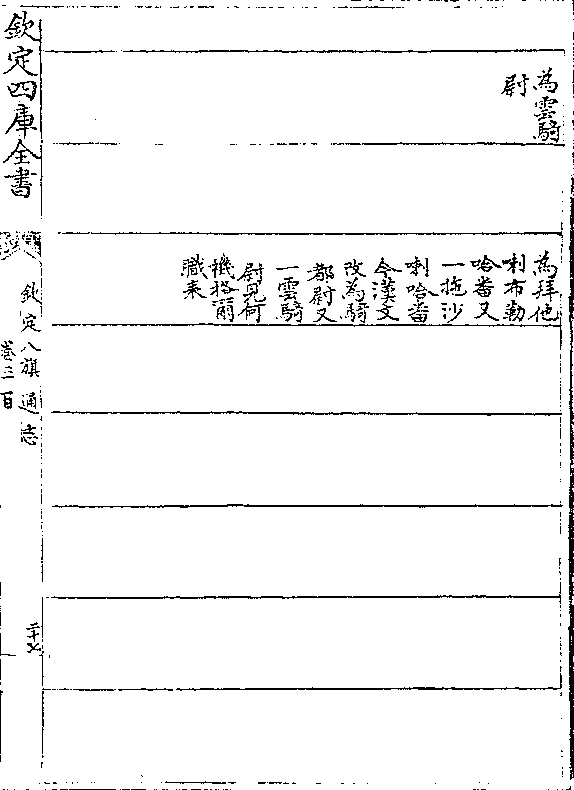 為雲騎
尉
為拜他
喇布勒
哈番又
一拖沙
喇哈番
今漢文
改為騎
都尉又
一雲騎
尉見何
機格爾
職表
欽定四庫全書
欽定八旗通志
卷三百
二十七